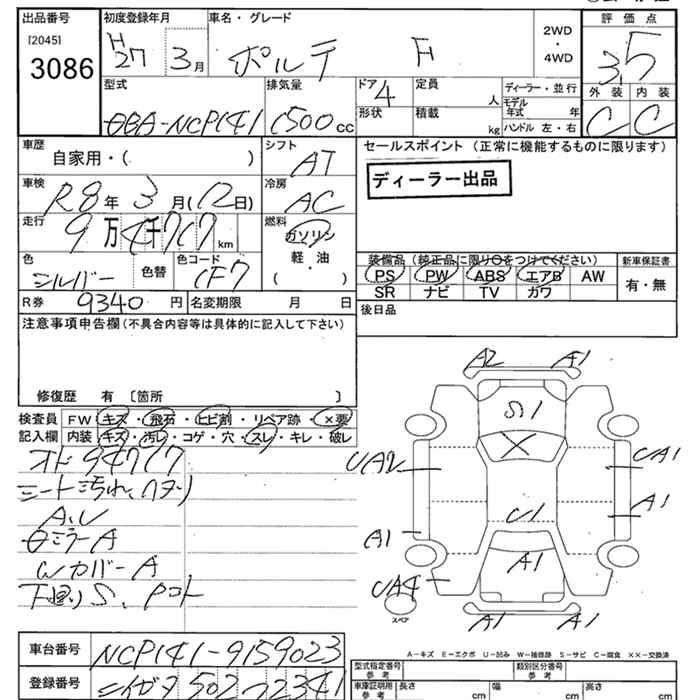 出品番号
[2045]
3086
初度登録年月
H27 3月
車名・グレード
ポルテ F
2WD
・
4WD
評価点
3.5
外装 内装
C C
型式
DBA-NCP141
排気量
1500cc
ドア
4
形状
定員
人
積載
kg
ディーラー・並行
モデル年式 年
ハンドル 左・右
車歴
自家用・( )
シフト
AT
車検
R8年3月(12日)
冷房
AC
走行
9万4千717km
燃料
ガソリン
軽・油
・
( )
色
シルバー
色替
色コード
1F7
R券 9340円
名変期限 月 日
セールスポイント (正常に機能するものに限ります)
ディーラー出品
装備品 (純正品に限り○をつけてください)
PS PW ABS エアB AW
SR ナビ TV カワ
新車保証書
有・無
後日品
注意事項申告欄(不具合内容等は具体的に記入して下さい)
修復歴 有 〔箇所 〕
検査員
記入欄
FW キズ・飛石・ヒビ割・リペア跡・×要
内装 キズ・汚レ・コゲ・穴・スレ・キレ・破レ
オド94717
シート汚れ、ヘタリ
A、U
ミラーA
Wカバー A
下廻りS、Pコト
A2 A1
S1
X
UA2 UA1
A1
U1
A1
A1
UA4
スペア
A1 A1
A-キズ E-エクボ U-凹み W-補修跡 S-サビ C-腐食 XX-交換済
車台番号
NCP141-9159023
登録番号
502 2341
型式指定番号
参考
類別区分番号
参考
車庫証明用
参考
長さ cm
幅 cm
高さ cm